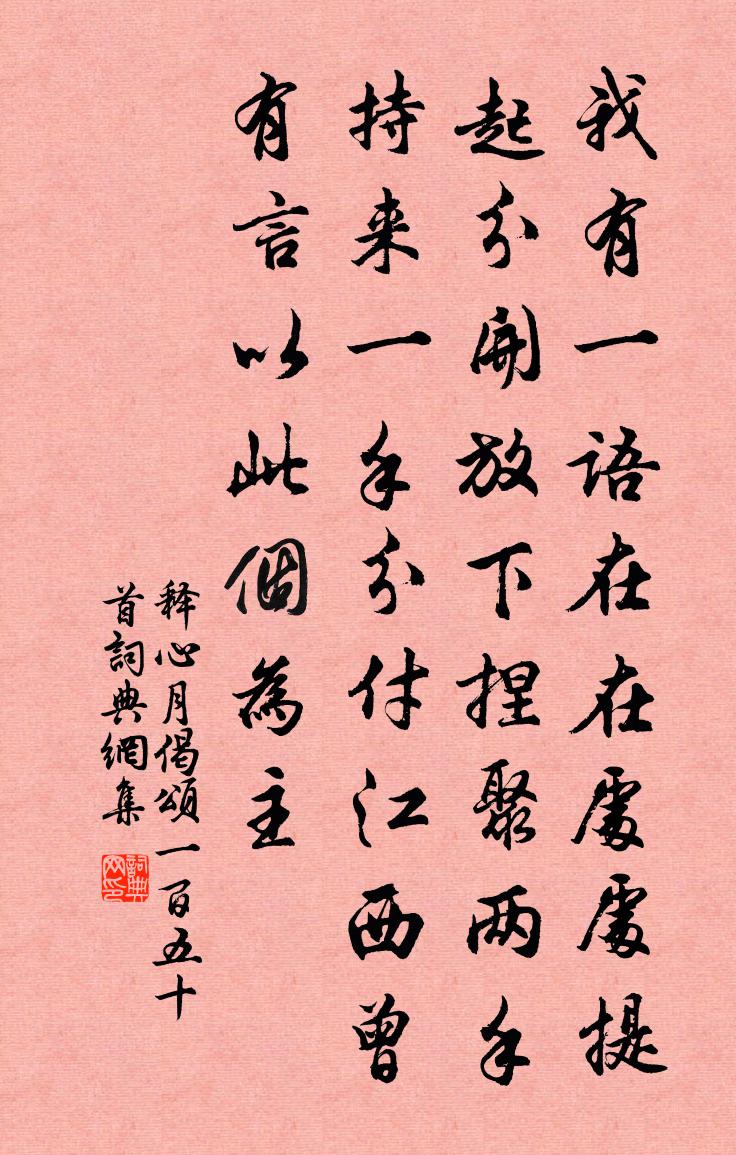 我有一語在在處處提
起分開放下捏聚两手
持来一手分付江西曾
有言以此個為主
释心月偈頌一百五十
首詞典網集
詞典网印